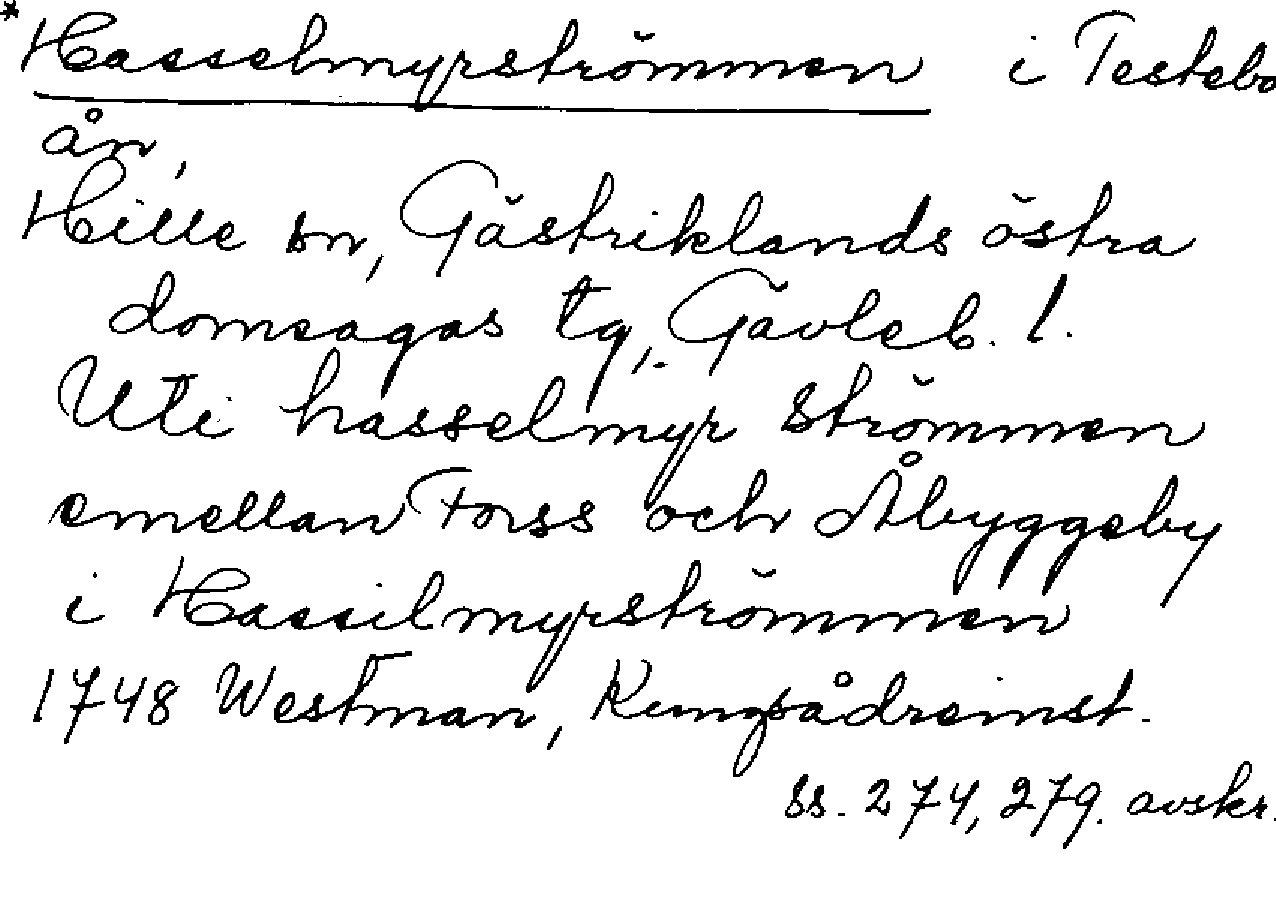 *Hasselmyrströmmen i Testebo
ån,
Hille sn, Gästriklands östra
domsagas tg, Gävleb. l.
Uti hasselmyr strömmen
emellan Forss och Åbyggeby
i Hassilmyrströmmen
1748 Westman, Kungsådreinst.
ss. 274, 279. avskr.